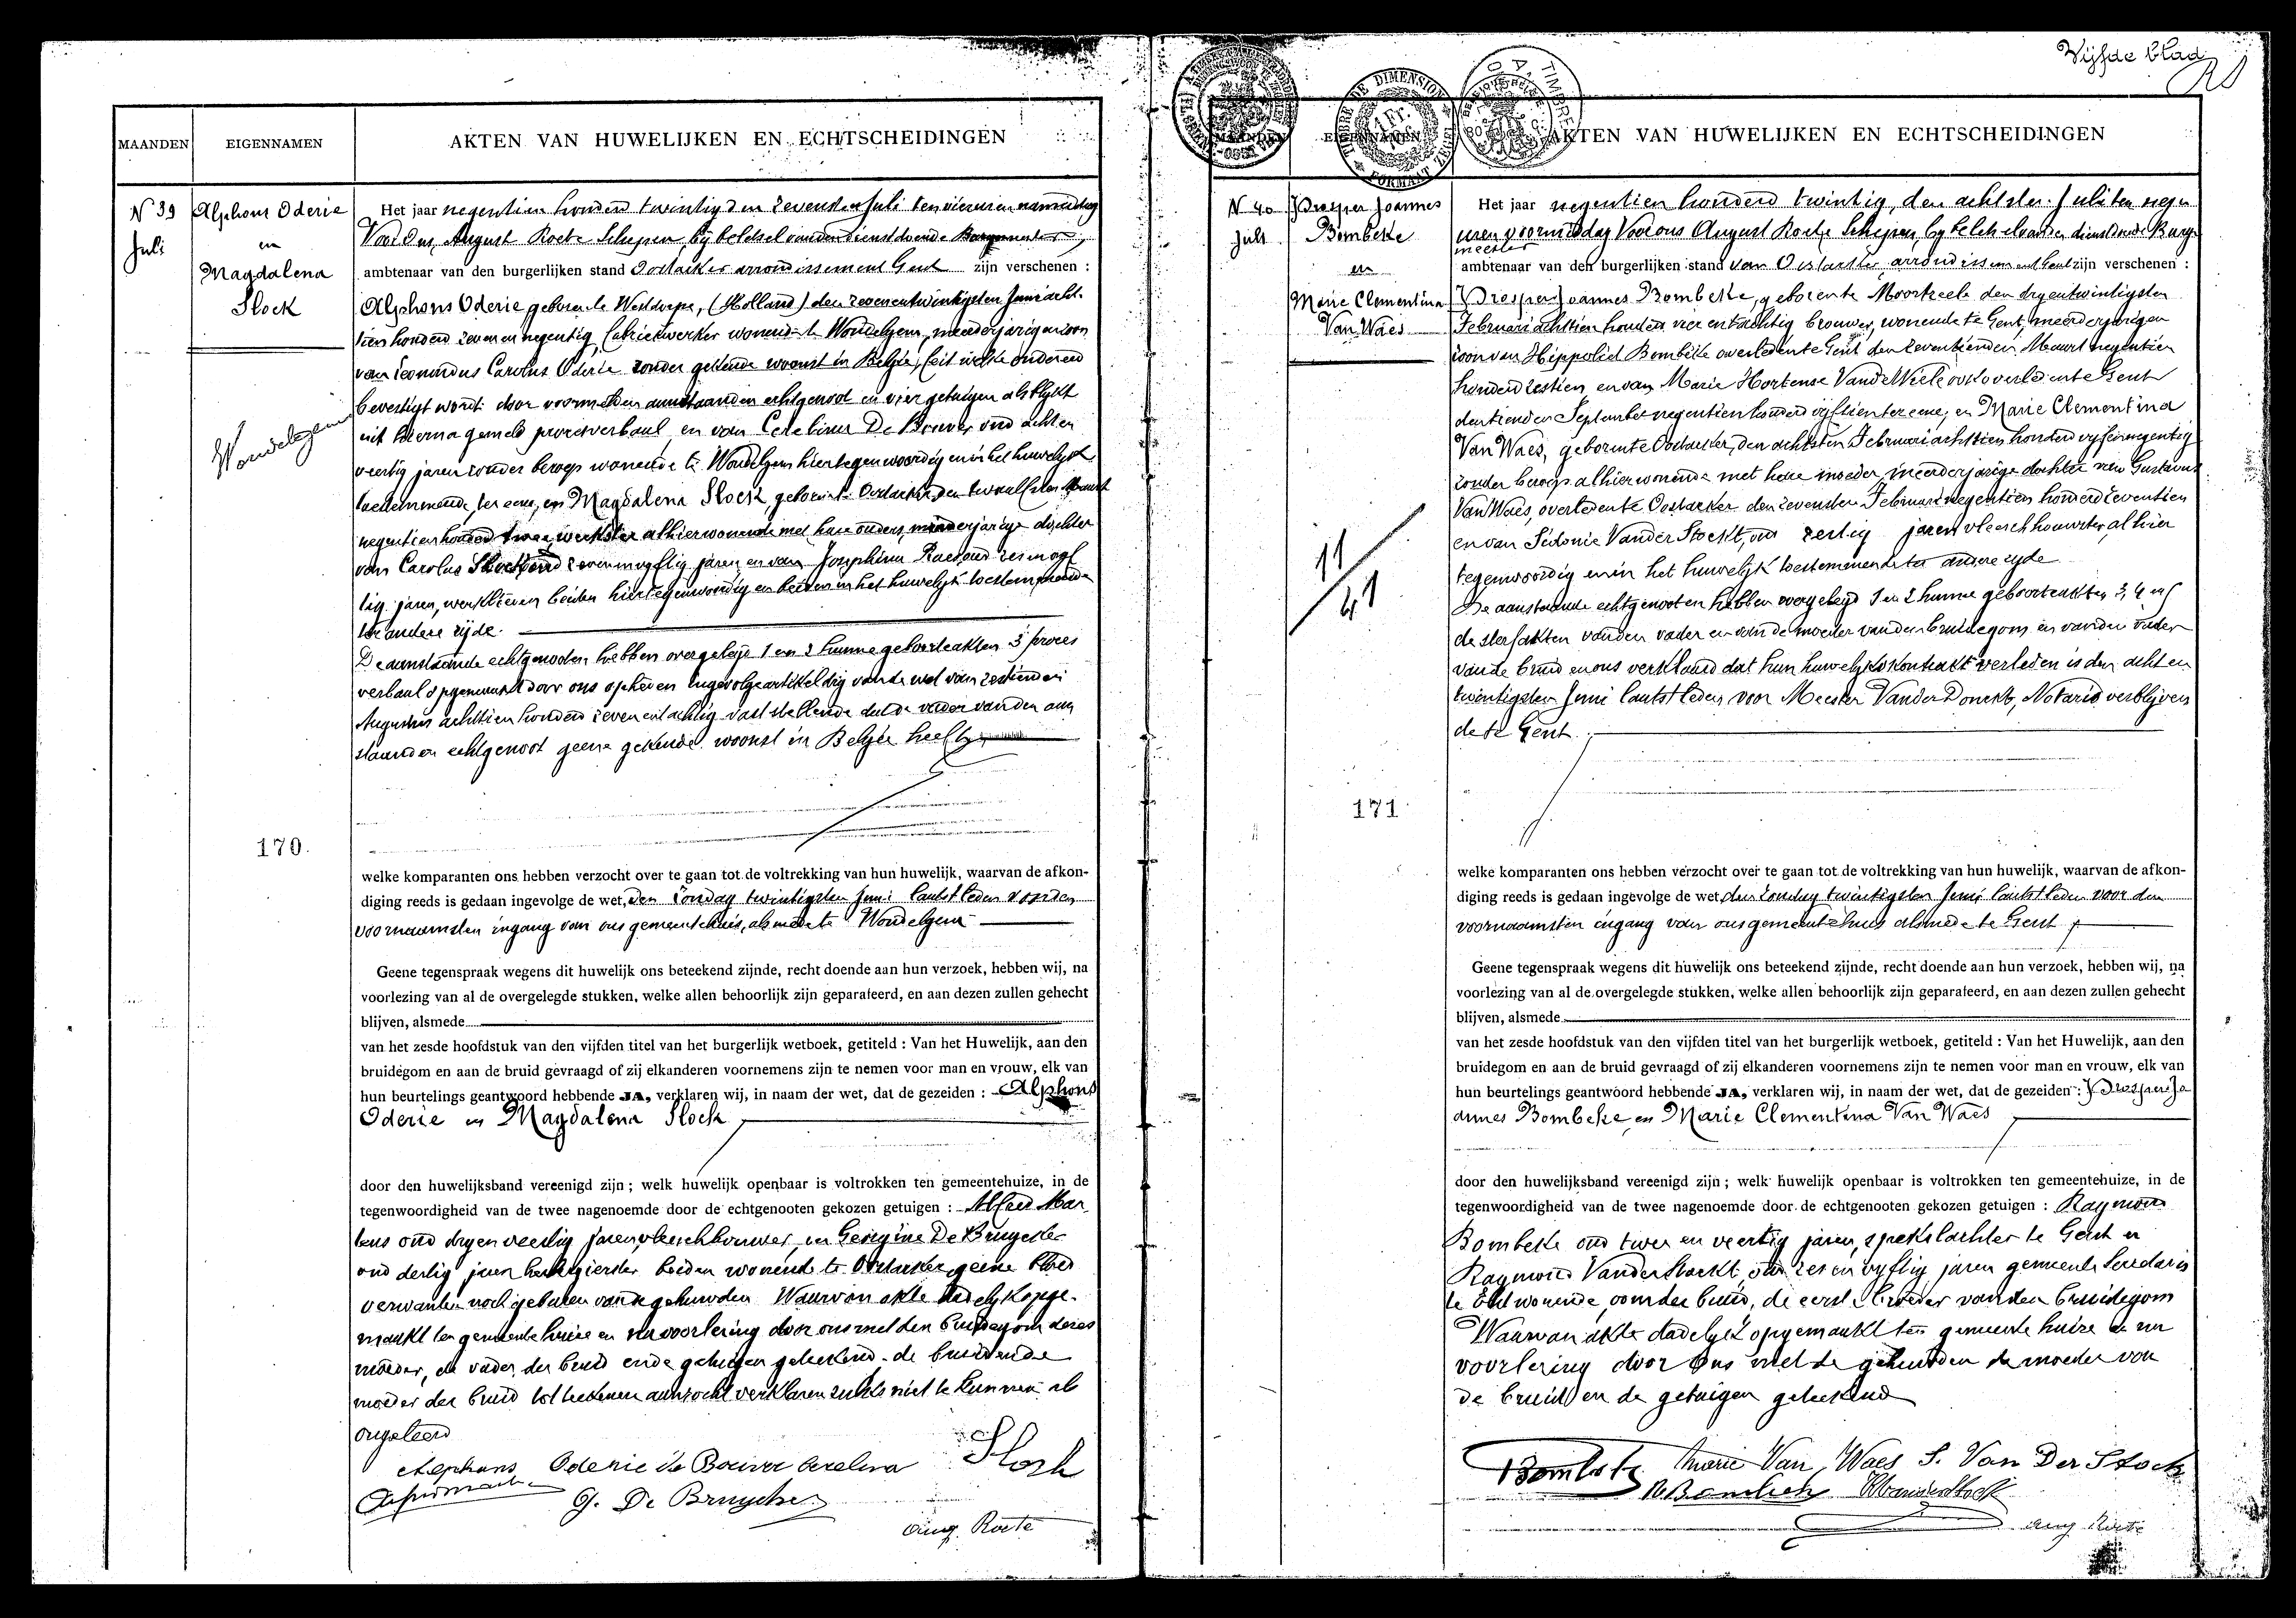 Vijfde blad
MAANDEN
EIGENNAMEN
AKTEN VAN HUWELIJKEN EN ECHTSCHEIDINGEN
N 39
Juli
Alphons Oderie
en
Magdalena
Stock
Wondelgem
170.
Het jaar negentien honderd twintig den zevensten Juli ten vier uren namiddag
Voor Ons, August Roete Schepen, bij beletsel van den dienstdoende Burgemeester,
ambtenaar van den burgerlijken stand Oostacker arrondissement Gent zijn verschenen :
Alphons Oderie geboren te Westdorpe, (Holland) den zevenentwintigsten Juni acht-
tien honderd zeven en negentig, fabriekwerker wonende te Wondelgem, meerderjarigen zoon
van Leonardus Carolus Oderie zonder gekende woonst in België, feit welke onder eed
bevestigt wordt door voormelden aanstaanden echtgenoot en vier getuigen als blijkt
uit hierna gemeld procesverbaal en van Coralina De Bouver oud acht en
veertig jaren zonder beroep wonende te Wondelgem hier tegenwoordig en in het huwelijk
toestemmende, ter eene, en Magdalena Stock, geboren te Oostacker, den twaalfsten Maart
negentien honderd twee, werkster alhier wonende met hare ouders, minderjarige dochter
van Carolus Stock oud zeven en vyftig jaren en van Josephina Raes oud zes en vyf
tig jaren, werklieden beiden hier tegenwoordig en beiden in het huwelijk toestemmende
ter andere zijde.
De aanstaande echtgenooten hebben overgelegd 1 en 2 hunne geboorteakten 3 proces
verbaal opgemaakt door ons opheden ingevolge artikel drij van de wet van zestienden
Augustus achttien honderd zeven en tachtig vaststellende dat de vader van den aan
staanden echtgenoot geene gekende woonst in België heeft
welke komparanten ons hebben verzocht over te gaan tot de voltrekking van hun huwelijk, waarvan de afkon-
diging reeds is gedaan ingevolge de wet, den zondag twintigsten Juni laatstleden voor den
voornaamsten ingang van ons gemeentehuis, alsmede te Wondelgem
Geene tegenspraak wegens dit huwelijk ons beteekend zijnde, recht doende aan hun verzoek, hebben wij, na
voorlezing van al de overgelegde stukken, welke allen behoorlijk zijn geparafeerd, en aan dezen zullen gehecht
blijven, alsmede
van het zesde hoofdstuk van den vijfden titel van het burgerlijk wetboek, getiteld : Van het Huwelijk, aan den
bruidegom en aan de bruid gevraagd of zij elkanderen voornemens zijn te nemen voor man en vrouw, elk van
hun beurtelings geantwoord hebbende JA, verklaren wij, in naam der wet, dat de gezeiden : Alphons
Oderie en Magdalena Stock
door den huwelijksband vereenigd zijn ; welk huwelijk openbaar is voltrokken ten gemeentehuize, in de
tegenwoordigheid van de twee nagenoemde door de echtgenooten gekozen getuigen : Alfred Mar
tens oud dryen veertig jaren, vleeschhouwer, en Georgine De Bruycker
oud dertig jaren herbergierster beiden wonende te Oostacker, geene bloed
verwanten noch gebuuren van de gehuwden Waarvan akte dadelijk opge-
maakt ten gemeentehuize en na voorlezing door ons met den bruidegom deszes
moeder, de vader der bruid en de getuigen geteekend, de bruid en de
moeder der bruid tot teekenen aanzocht verklaren zulks niet te kunnen als
ongeleerd
Alephons Oderie de Bouver Coralina Stock
G. De Bruycker
Aug. Roete
MAANDEN
EIGENNAMEN
AKTEN VAN HUWELIJKEN EN ECHTSCHEIDINGEN
TIMBRE DE DIMENSION
N 40
Juli
Prosper Joannes
Bombeke
en
Marie Clementina
Van Waes
11
41
171
Het jaar negentien honderd twintig, den achtsten Juli ten negen
uren voormiddag Voor ons August Roete Schepen, by beletsel van den dienstdoende Burge
meester
ambtenaar van den burgerlijken stand van Oostacker, arrondissement Gent zijn verschenen :
Prosper Joannes Bombeke, geboren te Moortzeele den dryentwintigsten
Februari achttien honderd vier en tachtig brouwer, wonende te Gent, meerderjarigen
zoon van Hippoliet Bombeke overleden te Gent den zeventienden Maart negentien
honderd zestien en van Marie Hortense Van de Wiele ook overleden te Gent
den tienden September negentien honderd vijftien ter eene, en Marie Clementina
Van Waes, geboren te Oostacker, den achtsten Februari achttien honderd vyf en negentig
zonder beroep alhier wonende met hare moeder, meerderjarige dochter van Gustavus
Van Waes, overleden te Oostacker den zevensten Februari negentien honderd zeventien
en van Sidonie Vander Stockt, oud zestig jaren vleeschhouwster, alhier
tegenwoordig en in het huwelijk toestemmende ter andere zyde
De aanstaande echtgenooten hebben overgelegd 1 en 2 hunne geboorteakten 3, 4 en 5
de sterfakten van den vader en van de moeder van den bruidegom en van den vader
van de bruid en ons verklaard dat hun huwelijkskontrakt verleden is den acht en
twintigsten Juni laatstleden voor Meester Vander Donckt, Notaris verblijven
de te Gent.
welke komparanten ons hebben verzocht over te gaan tot de voltrekking van hun huwelijk, waarvan de afkon-
diging reeds is gedaan ingevolge de wet, den zondag twintigsten Juni laatstleden voor den
voornaamsten ingang van ons gemeentehuis alsmede te Gent
Geene tegenspraak wegens dit huwelijk ons beteekend zijnde, recht doende aan hun verzoek, hebben wij, na
voorlezing van al de overgelegde stukken, welke allen behoorlijk zijn geparafeerd, en aan dezen zullen gehecht
blijven, alsmede
van het zesde hoofdstuk van den vijfden titel van het burgerlijk wetboek, getiteld : Van het Huwelijk, aan den
bruidegom en aan de bruid gevraagd of zij elkanderen voornemens zijn te nemen voor man en vrouw, elk van
hun beurtelings geantwoord hebbende JA, verklaren wij, in naam der wet, dat de gezeiden : Prosper Jo
annes Bombeke, en Marie Clementina Van Waes
door den huwelijksband vereenigd zijn ; welk huwelijk openbaar is voltrokken ten gemeentehuize, in de
tegenwoordigheid van de twee nagenoemde door de echtgenooten gekozen getuigen : Raymond
Bombeke oud twee en veertig jaren, spekslachter te Gent en
Raymond Vander Stockt, oud zes en vyftig jaren gemeente Secretaris
te wonende, oom der bruid, de eerste broeder van den bruidegom
Waarvan akte dadelijk opgemaakt ten gemeente huize en na
voorlezing door Ons met de gehuwden de moeder van
de bruid en de getuigen geteekend
Bombeke Marie Van Waes S. Van Der Stock
R Bombeke R Vanderstockt
Aug Roete